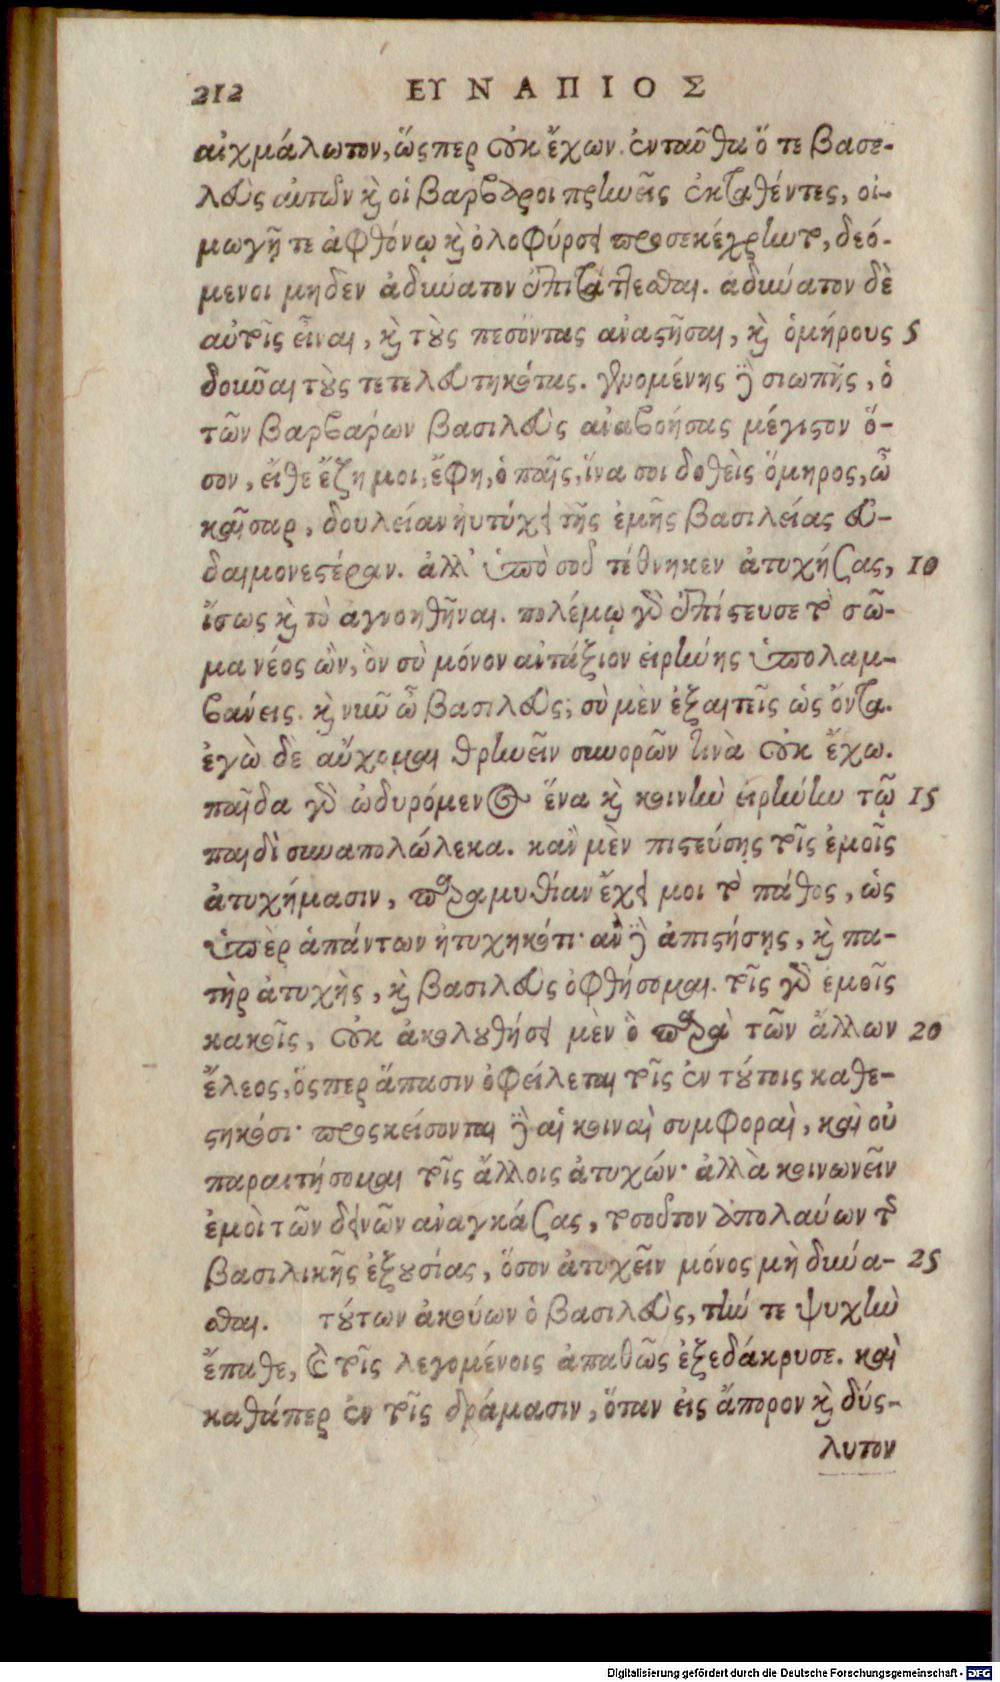 212 ΕΥΝΑΠΙΟΣ
αἰχμάλωτον, ὥςπερ οὐκ ἔχων. ἐνταῦθα ὅ τε βασε-
λεὺς αὐτῶν καὶ οἱ βάρβαροι πρηνεῖς ἐκταθέντες, οἰ-
μωγῇ τε ἀφθόνῳ καὶ ὀλοφύρσει προσεκέχρηντο, δεό-
μενοι μηδὲν ἀδύνατον ἐπιτάττεσθαι. ἀδύνατον δὲ
αὐτοῖς εἶναι, καὶ τοὺς πεσόντας ἀναστῆσαι, καὶ ὁμήρους 5
δοῦναι τοὺς τετελευτηκότας. γενομένης δὲ σιωπῆς, ὁ
τῶν βαρβάρων βασιλεὺς ἀναβοήσας μέγιστον ὅ-
σον, εἴθε ἔζη μοι, ἔφη, ὁ παῖς, ἵνα σοι δοθεὶς ὅμηρος, ὦ
καῖσαρ, δουλείαν ηὐτύχει τῆς ἐμῆς βασιλείας εὐ-
δαιμονεστέραν. ἀλλ' ὑπὸ σοῦ τέθνηκεν ἀτυχήσας, 10
ἴσως καὶ τὸ ἀγνοηθῆναι. πολέμῳ γὰρ ἐπίστευσε τὸ σῶ-
μα νέος ὢν, ὃν σὺ μόνον ἀντάξιον εἰρήνης ὑπολαμ-
βάνεις. καὶ νῦν ὦ βασιλεῦς, σὺ μὲν ἐξαιτεῖς ὡς ὄντα.
ἐγὼ δὲ ἄὔχομαι θρηνεῖν συνορῶν τινὰ οὐκ ἔχω.
παῖδα γὰρ ὠδυρόμενος ἕνα καὶ κοινὴν εἰρήνην τῷ 15
παιδὶ συναπολώλεκα. κἂν μὲν πιστεύσῃς τοῖς ἐμοῖς
ἀτυχήμασιν, παραμυθίαν ἔχει μοι τὸ πάθος, ὡς
ὑπὲρ ἁπάντων ἠτυχηκότι· ἂν δὲ ἀπιστήσῃς, καὶ πα-
τὴρ ἀτυχὴς, καὶ βασιλεὺς ὀφθήσομαι. τοῖς γὰρ ἐμοῖς
κακοῖς, οὐκ ἀκολουθήσει μὲν ὁ παρὰ τῶν ἄλλων 20
ἔλεος, ὅςπερ ἅπασιν ὀφείλεται τοῖς ἐν τούτοις καθε-
στηκόσι· προςκείσονται δὲ αἱ κοιναὶ συμφοραὶ, καὶ οὐ
παραιτήσομαι τοῖς ἄλλοις ἀτυχών· ἀλλὰ κοινωνεῖν
ἐμοὶ τῶν δεινῶν ἀναγκάσας, τοσοῦτον ἀπολαύων τῆς
βασιλικῆς ἐξουσίας, ὅσον ἀτυχεῖν μόνος μὴ δύνα- 25
σθαι. τούτων ἀκούων ὁ βασιλεὺς, τήν τε ψυχὴν
ἔπαθε, καὶ τοῖς λεγομένοις ἀπαθῶς ἐξεδάκρυσε. καὶ
καθάπερ ἐν τοῖς δράμασιν, ὅταν εἰς ἄπορον καὶ δύς-
λυτον
Digitalisierung gefördert durch die Deutsche Forschungsgemeinschaft - DFG